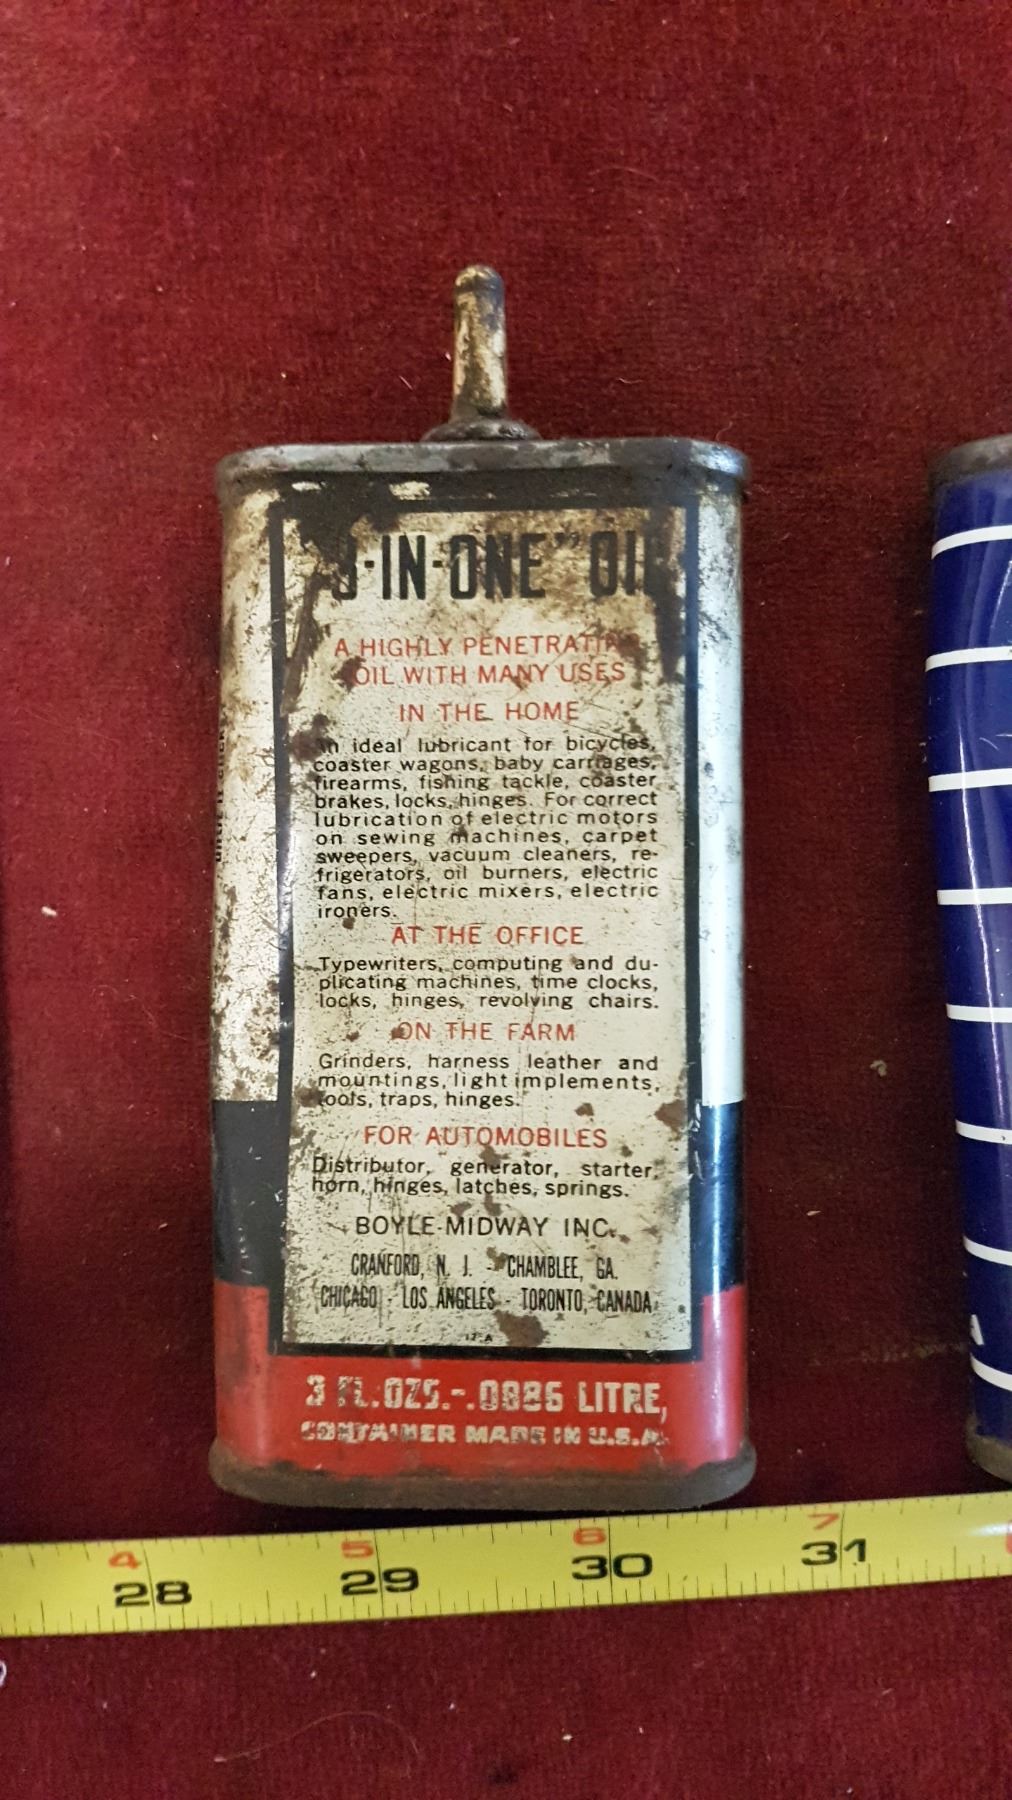 3-IN-ONE" OIL
A HIGHLY PENETRATING
OIL WITH MANY USES
IN THE HOME
An ideal lubricant for bicycles,
coaster wagons, baby carriages,
firearms, fishing tackle, coaster
brakes, locks, hinges. For correct
lubrication of electric motors
on sewing machines, carpet
sweepers, vacuum cleaners, re-
frigerators, oil burners, electric
fans, electric mixers, electric
ironers.
AT THE OFFICE
Typewriters, computing and du-
plicating machines, time clocks,
locks, hinges, revolving chairs.
ON THE FARM
Grinders, harness leather and
mountings, light implements,
tools, traps, hinges.
FOR AUTOMOBILES
Distributor, generator, starter,
horn, hinges, latches, springs.
BOYLE-MIDWAY INC.
CRANFORD, N. J. - CHAMBLEE, GA.
CHICAGO - LOS ANGELES - TORONTO, CANADA
17-A
3 FL. OZS.-.0886 LITRE,
CONTAINER MADE IN U.S.A.
A
4 5 6 7
28 29 30 31